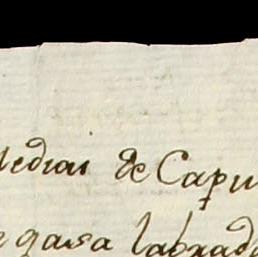 Medias de Capu
gasa labrada